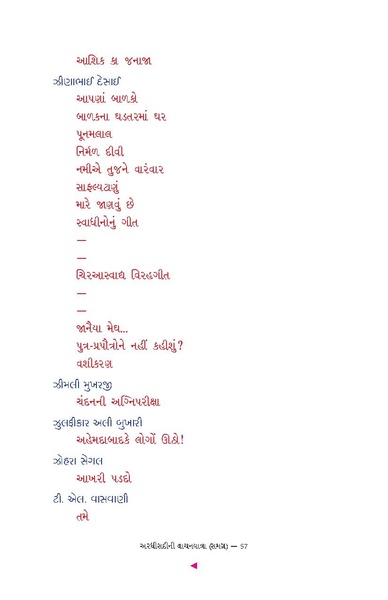 આશિક કા જનાજા
ઝીણાભાઈ દેસાઈ
આપણાં બાળકો
બાળકના ઘડતરમાં ઘર
પૂનમલાલ
નિર્મળ દીવી
નમીએ તુજને વારંવાર
સાફલ્યટાણું
મારે જાણવું છે
સ્વાધીનોનું ગીત
—
—
ચિરઆસ્વાદ્ય વિરહગીત
—
—
જાનૈયા મેઘ...
પુત્ર-પ્રપૌત્રોને નહીં કહીશું?
વશીકરણ
ઝીમલી મુખરજી
ચંદનની અગ્નિપરીક્ષા
ઝુલફીકાર અલી બુખારી
અહેમદાબાદકે લોગોં ઊઠો!
ઝોહરા સેગલ
આખરી પડદો
ટી. એલ. વાસવાણી
તમે
અરધીસદીની વાચનયાત્રા (સમગ્ર) — 57